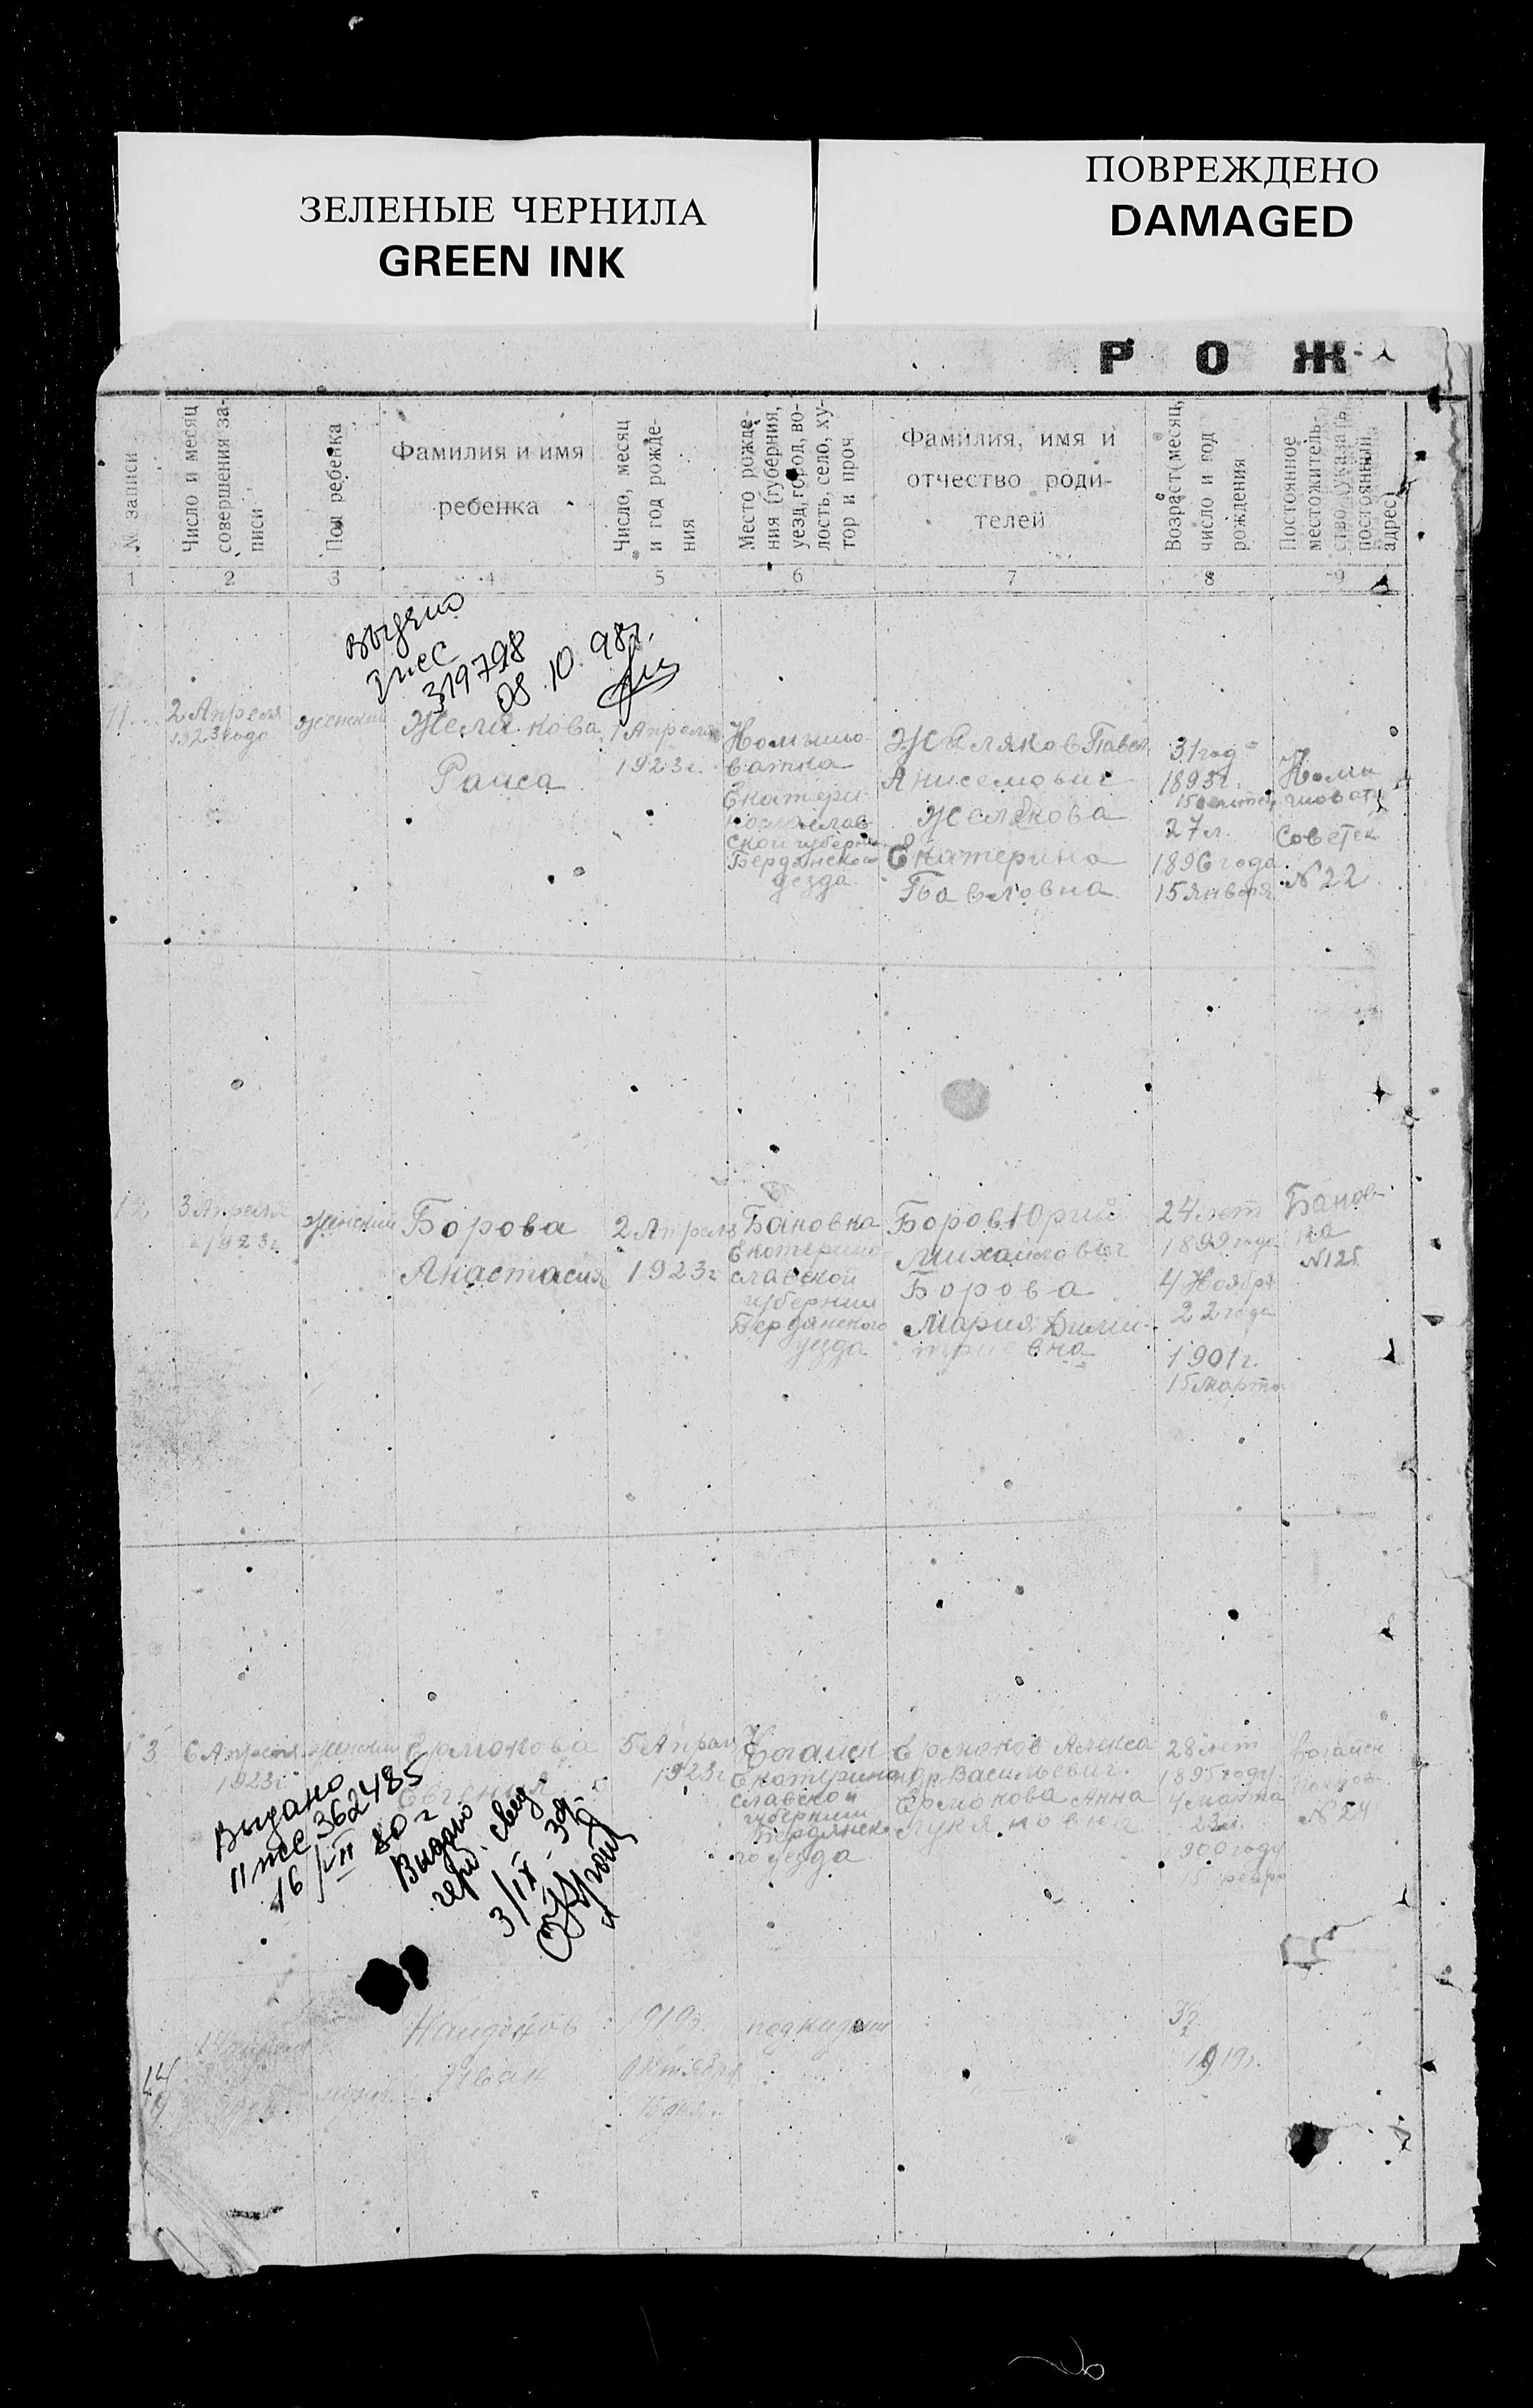 ЗЕЛЕНЫЕ ЧЕРНИЛА
GREEN INK
ПОВРЕЖДЕНО
DAMAGED
Р О Ж-
№ записи
Число и месяц
совершения за-
писи
Пол ребенка
Фамилия и имя
ребенка
Число, месяц
и год рожде-
ния
Место рожде-
ния (губерния,
уезд, город, во-
лость, село, ху-
тор и проч
Фамилия, имя и
отчество роди-
телей
Возраст (месяц,
число и год
рождения
Постоянное
местожитель-
ство (указать
постоянный
адрес)
1 2 3 4 5 6 7 8 9
выдано
319798
08.10.98г.
11
2 Апреля
1923 года
женский
Желякова
Раиса
1 Апреля
1923 г.
ватка
Екатери-
нослав-
ской губернии
Бердянского
уезда
Желяков Павел
Анисимович
Желякова
Екатерина
Павловна
31 год
1893 г.
27 л.
1896 года
15 января
Советск
№ 22
12
3 Апреля
1923 г.
женский
Борова
Анастасия
2 Апреля
1923 г
Бановка
Екатерино-
славской
губернии
Бердянского
уезда
Боров Юрий
Михайлович
Борова
Мария Дими-
триевна
24 лет
1899 года
4 Ноября
22 года
1901 г.
15 Марта
Банов-
ка
№ 125
13
6 Апреля
1923 г
женский
Ермокова
Евгения
5 Апрел
1923 г
Ногайск
Екатерино-
славской
губернии
Бердянск-
го уезда
Ермоков Алекса
ндр Васильевич
Ермокова Анна
Лукяновна
28 лет
1895 году
4 Марта
23 л.
1900 году
15 февра
Ногайск
№ 24
Выдано
362485
16/VII 80 г
Выдано
свид
3/IX-
14
Найденов
Иван
1919 г.
Октября
подкидыш
1919 г.